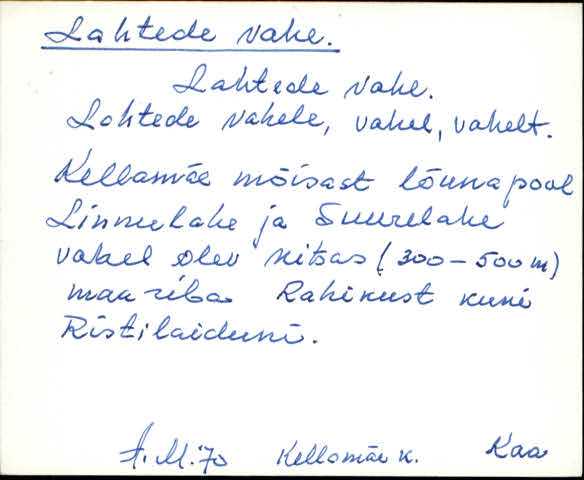 Lahtede vahe.
Lahtede vahe.
Lahtede vahele, vahel, vahelt.
Kellamäe mõisast lõunapool
Linnulahe ja Suurelahe
vahel olev kitsas (300-500m)
maariba Rahikust kuni
Ristilaiduni.
A.M.'70 Kellamäe k. Kaa